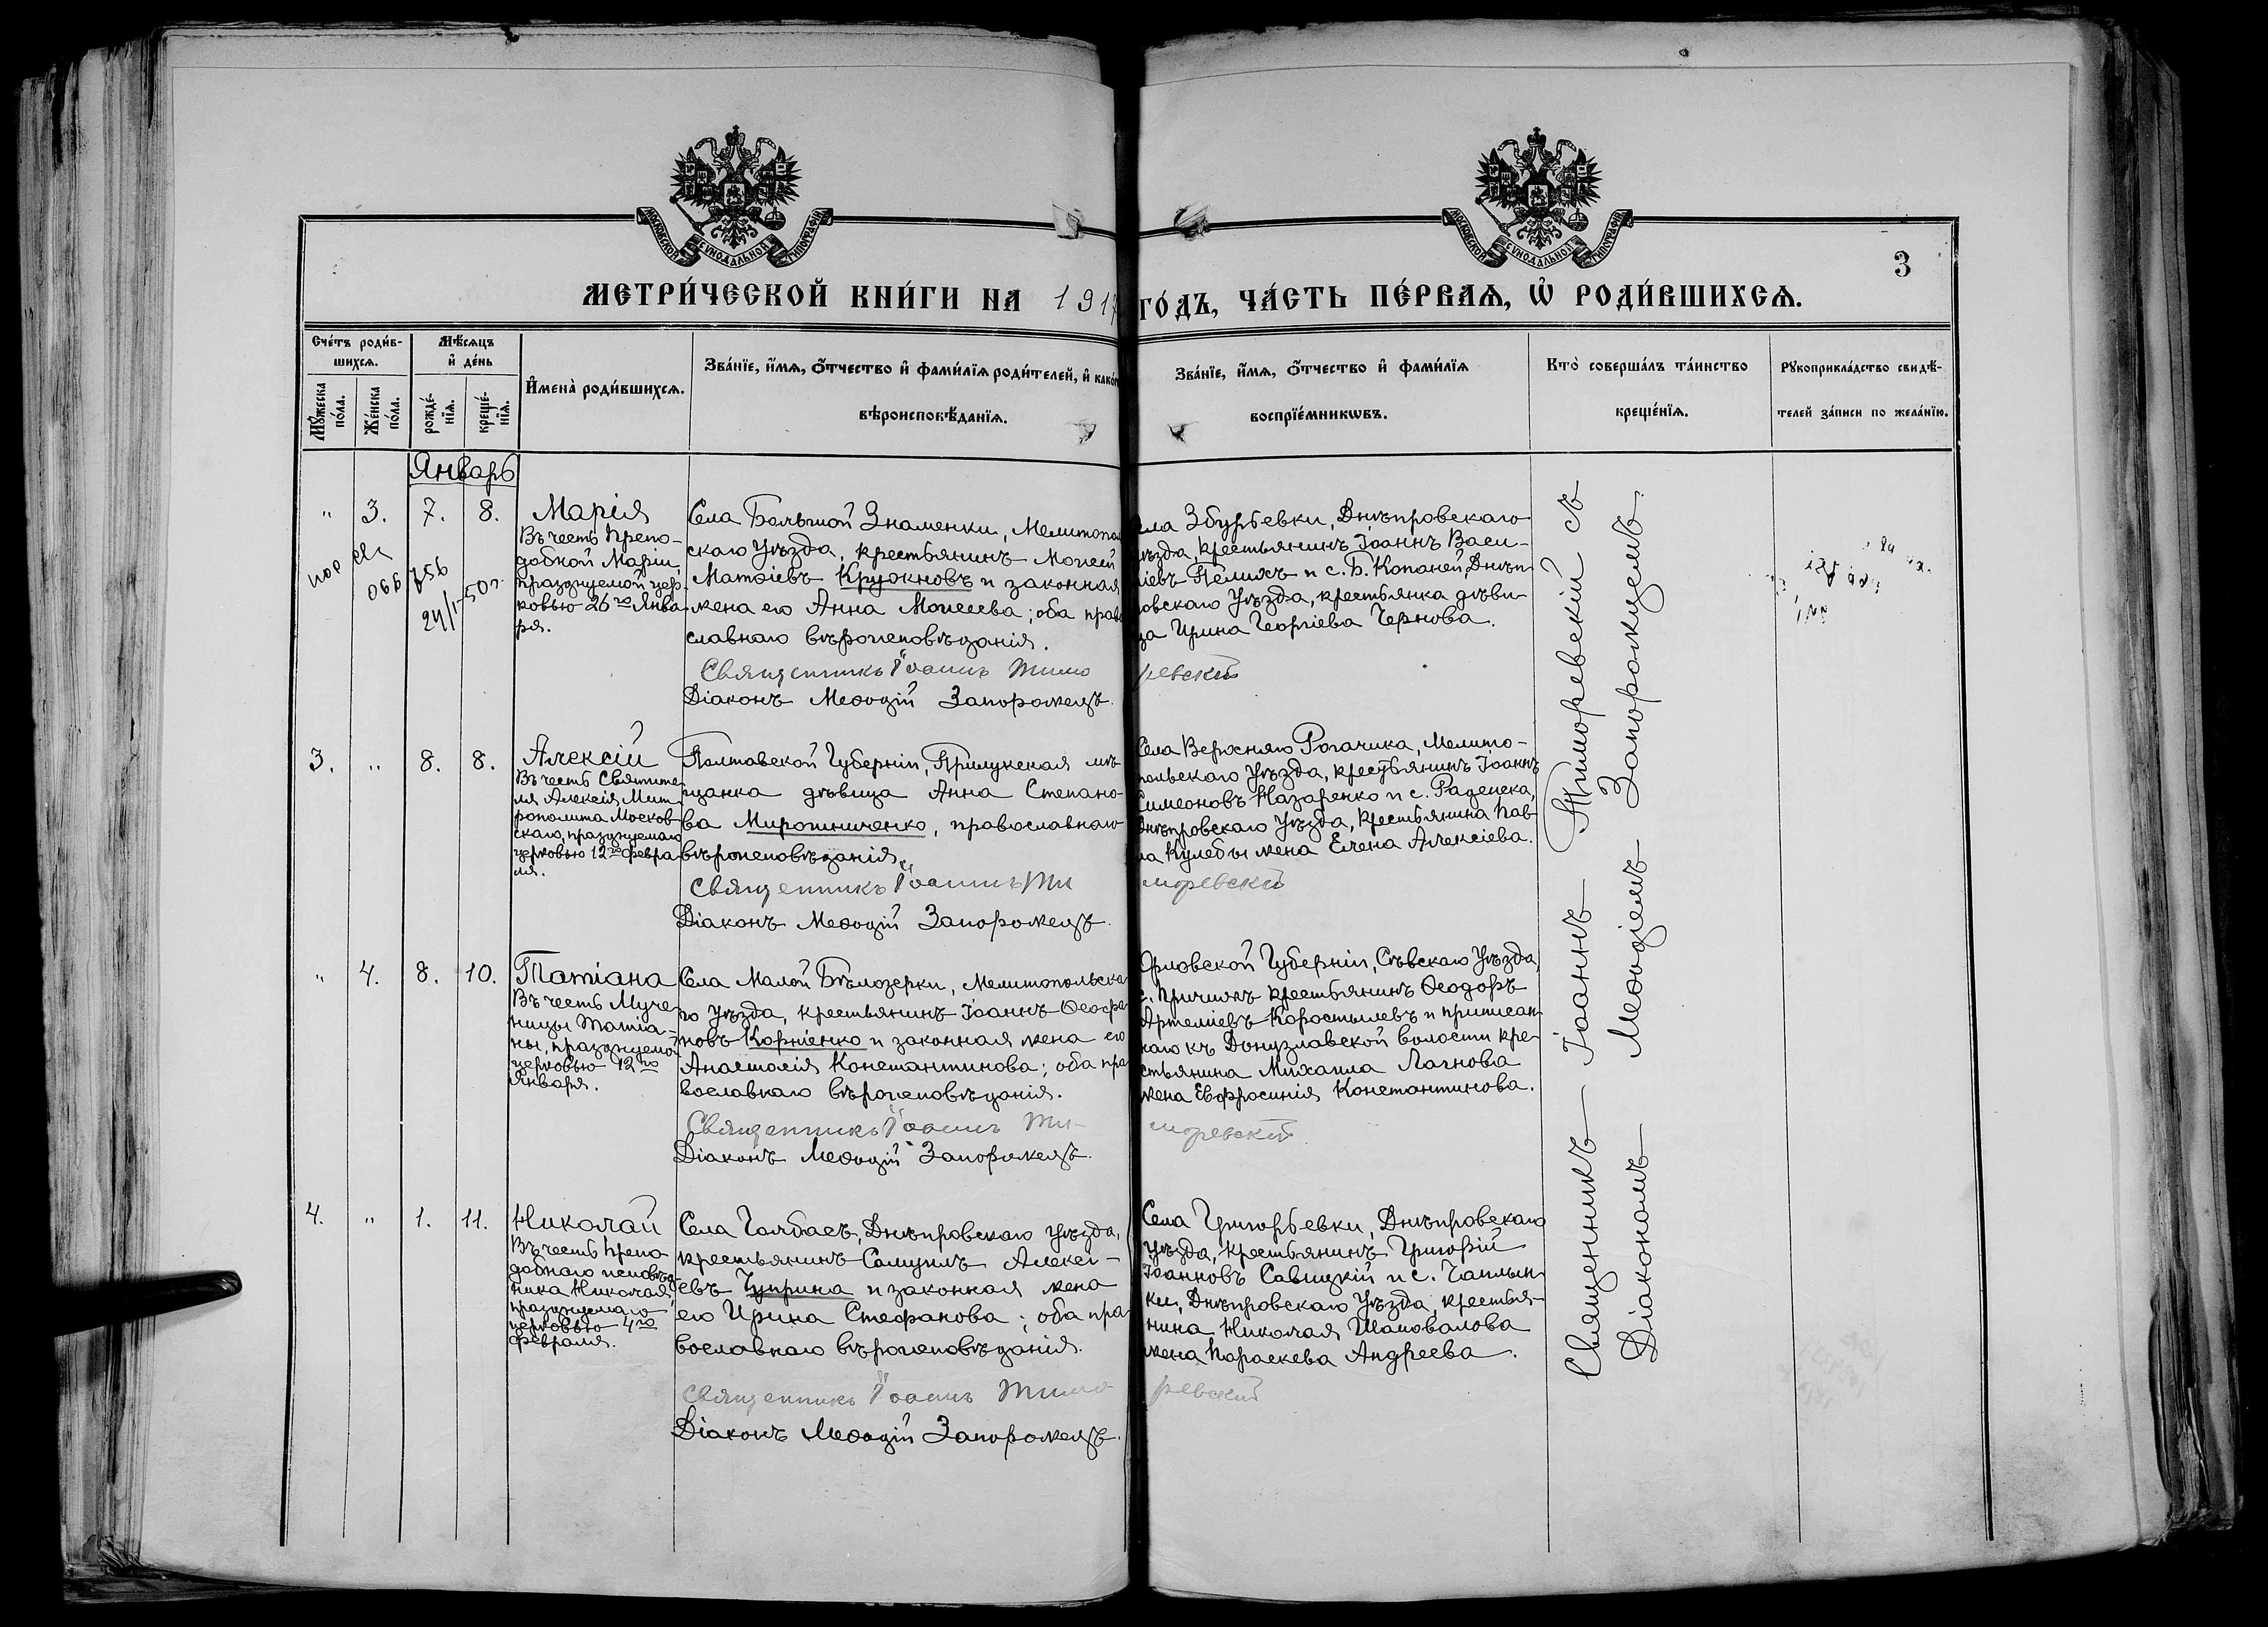 МОСКОВСКОЙ СѴНОДАЛЬНОЙ ТИПОГРАФІИ
МОСКОВСКОЙ СѴНОДАЛЬНОЙ ТИПОГРАФІИ
3
МЕТРИ́ЧЕСКОЙ КНИ́ГИ НА 1917
ГО́ДЪ, ЧА́СТЬ ПЕ́РВАѦ, Ѡ РОДИ́ВШИХСѦ.
Сче́тъ роди́в-
шихсѧ.
Мѣ́сѧцъ
и҆ де́нь
Мꙋ́жеска
по́ла.
Же́нска
по́ла.
рожде́-
нїѧ.
креще́-
нїѧ.
И҆мена̀ роди́вшихсѧ.
Зва́нїе, и҆́мѧ, ѻ҆́тчество и҆ фами́лїѧ роди́телей, и҆ како́г
вѣроисповѣ́данїѧ.
Зва́нїе, и҆́мѧ, ѻ҆́тчество и҆ фами́лїѧ
воспрїе́мникѡвъ.
Кто̀ соверша́лъ та́инство
креще́нїѧ.
Рꙋкоприкла́дство свидѣ́-
телей за́писи по жела́нїю.
Январь
" 3. 7. 8. Марія
Въ честь Препо-
добной Маріи,
празднуемой цер-
ковью 26го Янва-
ря.
24/I-50г.
Села Большой Знаменки, Мелитополь
скаго Уѣзда, крестьянинъ Моисей
Матѳіевъ Крюкновъ и законная
жена его Анна Моисеева; оба право
славнаго вѣроисповѣданія.
Священникъ Іоаннъ Тимо
Діаконъ Меѳодій Запорожецъ.
ела Збурьевки, Днѣпровскаго
уѣзда, крестьянинъ Іоаннъ Васи-
ліевъ Пелихъ и с. Б. Копаней, Днѣп-
ровскаго Уѣзда, крестьянка дѣви-
ца Ирина Георгіева Чернова.
ревскій
3. " 8. 8. Алексій
Въ честь Святите
ля Алексія, Мит
рополита Москов-
скаго, празднуемаго
церковью 12го Февра
ля.
Полтавской Губерніи, Прилукская мѣ-
щанка дѣвица Анна Степано-
ва Мирошниченко, православнаго
вѣроисповѣданія.
Священникъ Іоаннъ Ти
Діаконъ Меѳодій Запорожецъ.
Села Верхняго Рогачика, Мелито-
польскаго Уѣзда, крестьянинъ Іоаннъ
Симеоновъ Назаренко и с. Раденска,
Днѣпровскаго Уѣзда, крестьянина Пав-
ла Кулебы жена Елена Алексіева.
моревскій
" 4. 8. 10. Татіана
Въ честь Муче-
ницы Татіа-
ны, празднуемой
церковью 12го
Января.
Села Малой Бѣлозерки, Мелитопольска
го Уѣзда, крестьянинъ Іоаннъ Ѳеофа
новъ Корніенко и законная жена его
Анастасія Константинова; оба пра
вославнаго вѣроисповѣданія.
Священникъ Іоаннъ Ти-
Діаконъ Меѳодій Запорожецъ.
Орловской Губерніи, Сѣвскаго Уѣзда,
крестьянинъ Ѳеодоръ
Артеміевъ Коростылевъ и приписан
наго къ Донузлавской волости кре-
стьянина Михаила Лагнова
жена Евфросинія Константинова.
моревскій
4. " 1. 11. Николай
Въ честь Препо
добнаго исповѣд-
ника Николая,
празднуемаго
церковью 4го
Февраля.
Села Чалбасъ, Днѣпровскаго Уѣзда,
крестьянинъ Самуилъ Алексі-
евъ Чуприна и законная жена
его Ирина Стефанова; оба пра
вославнаго вѣроисповѣданія.
Священникъ Іоаннъ Тимо
Діаконъ Меѳодій Запорожецъ.
Села Григорьевки, Днѣпровскаго
Уѣзда, крестьянинъ Григорій
Іоанновъ Савицкій и с. Чаплын-
ки, Днѣпровскаго Уѣзда, крестья-
нина Николая Шаповалова
жена Параскева Андреева.
ревскій
Священникъ Іоаннъ Тиморевскій съ
Діакономъ Меѳодіемъ Запорожцемъ.